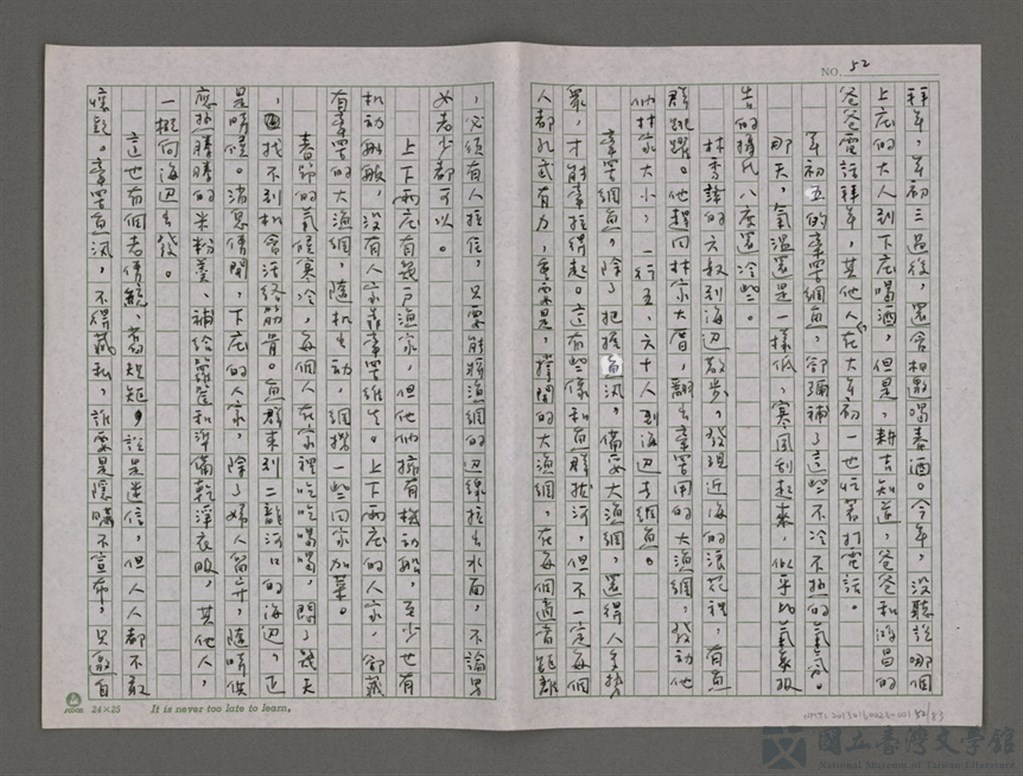 NO. 52
拜年,年初三過後,還會相邀喝春酒。今年,沒聽說哪個
上庄的大人到下庄喝酒,但是,耕吉知道,爸爸和鴻昌的
爸爸電話拜年,其他人在大年初一也忙著打電話。
年初五的牽罟網魚,卻彌補了這些不冷不熱的氣氛。
那天,氣溫還是一樣低,寒風刮起來,似乎比氣象報
告的攝氏八度還冷些。
林秀謙的六叔到海边散步,發現近海的浪花裡,有魚
群跳躍。他趕回林家大厝,翻出牽罟用的大漁網,發動他
們林家大小,一行五、六十人到海边去網魚。
牽罟網魚,除了把握魚汛,備妥大漁網,還得人多勢
眾,才能牽拉得起。這有些像和魚群拔河,但不一定每個
人都孔武有力,重要是,撐開的大漁網,在每個適當距離
,必須有人拉住,只要能將漁網的边線拉出水面,不論男
女老少都可以。
上下兩庄有幾戶漁家,但他們擁有機動船,至少也有
机动舢舨,沒有人家靠牽罟維生。上下兩庄的人家,都藏
有牽罟的大漁網,隨机出动,網撈一些回家加菜。
春節的氣候寒冷,每個人在家裡吃吃喝喝,悶了幾天
,找不到机會活絡筋骨。魚群來到二龍河口的海边,正
是時候。消息傳開,下庄的人家,除了婦人留守,隨時供
應熱騰騰的米粉羹、補給籮筐和準備乾淨衣服,其他人,
一擁向海边出發。
這也有個老傳統、舊規矩,說是迷信,但人人都不敢
懷疑。牽罟魚汛,不得藏私,誰要是隱瞞不宣布,只邀自
24×25
It is never too late to learn,
NMTL20130160023-001 52/83
國立臺灣文學館
National Museum of Taiwan Literature